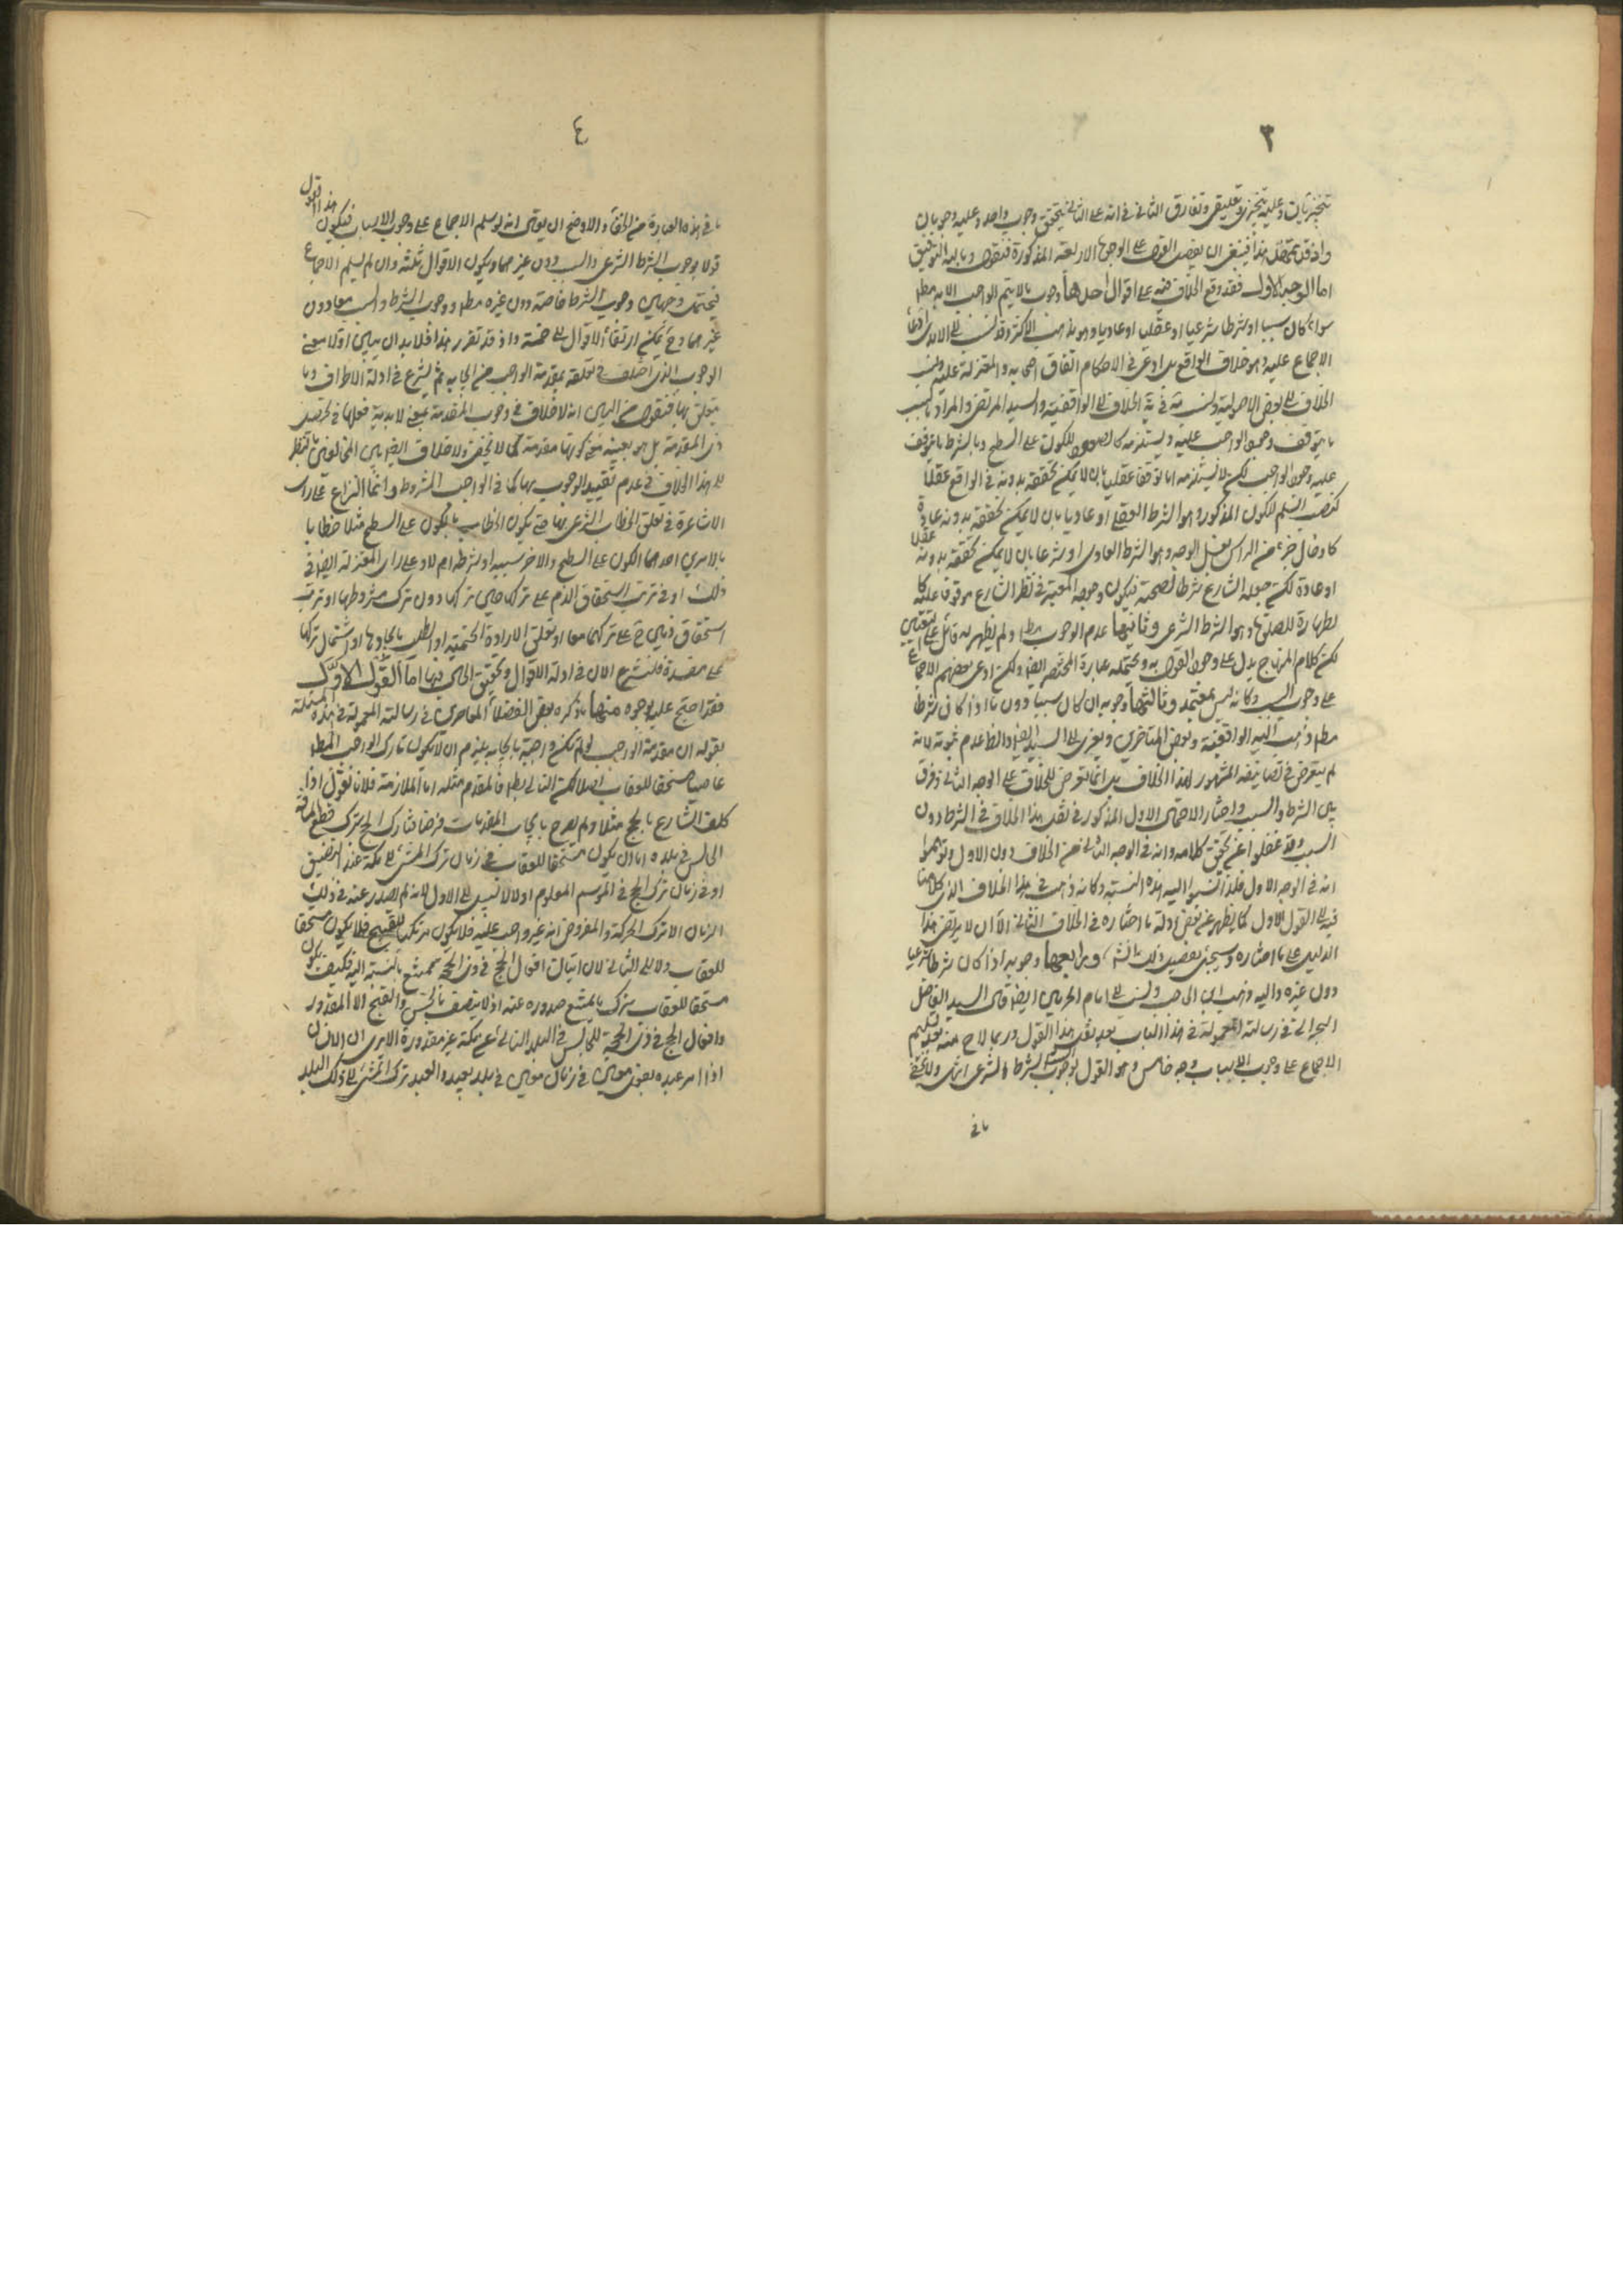 ٣
واذ قد تمهّد هذا فينبغى ان يفصل القول على الوجوه الاربعة المذكورة فنقول وبالله التوفيق
اما الوجه الاول فقد وقع الخلاف فيه على اقوال أحدها وجوب ما لا يتم الواجب الا به مط
سواء كان سببا او شرطا شرعيا او عقليا او عاديا وهو مذهب الاكثر وقد نسب الى الآمدى
الاجماع عليه وهو خلاف الواقع بل ادعى فى الاحكام اتفاق اصحابه والمعتزلة عليه ونسب
الخلاف الى بعض الاصوليين وفى الخلاف الى الواقفية والسيد المرتضى والمراد بالسبب
ما يتوقف وجود الواجب عليه ويستلزمه كالصعود للكون على السطح وبالشرط ما يتوقف
عليه وجود الواجب لكن لا يستلزمه اما توقفا عقليا بان لا يمكن تحققه بدونه فى الواقع عقلا
كنصب السلم للكون المذكور وهو الشرط العقلى او عاديا بان لا يمكن تحققه بدونه عادة
كادخال جزء من الراس لغسل الوجه وهو الشرط العادى او شرعا بان لا يمكن تحققه بدونه عقلا
او عادة لكن جعله الشارع شرطا لصحته فيكون وجوده المعتبر فى نظر الشارع موقوفا عليه كا
لطهارة للصلوة وهو الشرط الشرعى وثانيها عدم الوجوب مط ولم يظهر له قائل على التعيين
لكن كلام المنهاج يدل على وجود القول به ويحتمله عبارة المختصر ايضا ولكن ادعى بعضهم الاجماع
على وجوب السبب وكانه ليس بمعتمد وثالثها وجوبه ان كان سببا دون ما اذا كان شرطا
مط وذهب اليه الواقفية وبعض المتاخرين ويعزى الى السيد ايضا والظ عدم ثبوته لانه
لم يتعرض فى تصانيفه المشهور لهذا الخلاف بل انما تعرض للخلاف على الوجه الثانى وفرق
بين الشرط والسبب واختار الاحتمال الاول المذكور فى نقل هذا الخلاف فى الشرط دون
السبب وقد غفلوا عن تحقيق كلامه وانه فى الوجه الثانى من الخلاف دون الاول وتوهموا
انه فى الوجه الاول فلذا نسبوا اليه هذه النسبة وكانه ذهب فى هذا الخلاف الذى كلامنا
فيه الى القول الاول كما يظهر عن بعض ادلة ما اختاره فى الخلاف الثانى الا ان لا يرتضى هذا
الدليل على ما اختاره وسيجئ تفصيل ذلك ورابعها وجوبه اذا كان شرطا شرعيا
دون غيره واليه ذهب ابن الحاجب ونسب الى امام الحرمين ايضا قال السيد الفاضل
البحرانى فى رسالته المعمولة فى هذا الباب بعد نقل هذا القول وربما لاح منه بعد تسليم
الاجماع على وجوب الاسباب وجه خامس وهو القول بوجوب السبب والشرط الشرعى انتهى ولا يخفى
ما فى
٤
ما فى هذه العبارة من الخفاء والاوضح ان يقول انه لو سلم الاجماع على وجوب الاسباب فيكون هذا القول
قولا بوجوب الشرط الشرعى والسبب دون غيرهما ويكون الاقوال ثلثة وان لم يسلم الاجماع
فيحتمل وجهان وجوب الشرط خاصة دون غيره مط ووجوب الشرط والسبب معا دون
غيرهما وح يمكن ارتقاء الاقوال الى خمسة واذ قد تقرر هذا فلا بد ان يبين اولا معنى
الوجوب الذى اختلف فى تعلقه بمقدمة الواجب من ايجابه ثم يشرع فى ادلة الاطراف وما
يتعلق بها فنقول من البين انه لا خلاف فى وجوب المقدمة بمعنى لابدية فعلها فى تحصيل
ذى المقدمة بل هو بعينه معنى كونها مقدمة كما لا يخفى ولا خلاف ايضا بين المخالفين بالنظر
الى هذا الخلاف فى عدم تقييد الوجوب بها كما فى الواجب المشروط وانما النزاع على راى
الاشاعرة فى تعلق الخطاب الشرعى بها حتى يكون الخطاب بالكون على السطح مثلا خطابا
بالامرين احدهما الكون على السطح والاخر سببه او شرطه ام لا وعلى راى المعتزلة ايضا فى
ذلك او فى ترتب استحقاق الذم على تركها حين تركها دون ترك مشروطها او ترتب
استحقاق ذمين ح على تركهما معا او تعلق الارادة الحتمية او الطلب بايجادها او اشتمال تركها
على مفسدة فلنشرع الان فى ادلة الاقوال وتحقيق الحال فيها اما القول الاول
فقد احتج عليه بوجوه منها ما ذكره بعض الفضلاء المعاصرين فى رسالته المعمولة فى هذه المسئلة
بقوله ان مقدمة الواجب لو لم تكن واجبة بايجابه يلزم ان لا يكون تارك الواجب المط
عاصيا مستحقا للعقاب اصلا لكن التالى بط فالمقدم مثله اما الملازمة فلانا نقول اذا
كلف الشارع بالحج مثلا ولم يصرح بايجاب المقدمات فرضا فتارك الحج بترك قطع المسافة
الجالس فى بلده اما ان يكون مستحقا للعقاب فى زمان ترك المشى الى مكة عند التضييق
او فى زمان ترك الحج فى الموسم المعلوم او لا لا سبيل الى الاول لانه لم يصدر عنه فى ذلك
الزمان الا ترك الحركة والمفروض انه غير واجب عليه فلا يكون مرتكبا للقبيح فلا يكون مستحقا
للعقاب ولا الى الثانى لان اتيان افعال الحج فى ذى الحجة ممتنع بالنسبة اليه فكيف يكون
مستحقا للعقاب بترك ما يمتنع صدوره عنه اذ لا يتصف بالحسن والقبح الا المقدور
وافعال الحج فى ذى الحجة للجالس فى البلد النائى عن مكة غير مقدورة الا ترى ان الانسان
اذا امر عبده بفعل معين فى زمان معين فى بلد بعيد والعبد ترك المشى الى ذلك البلد